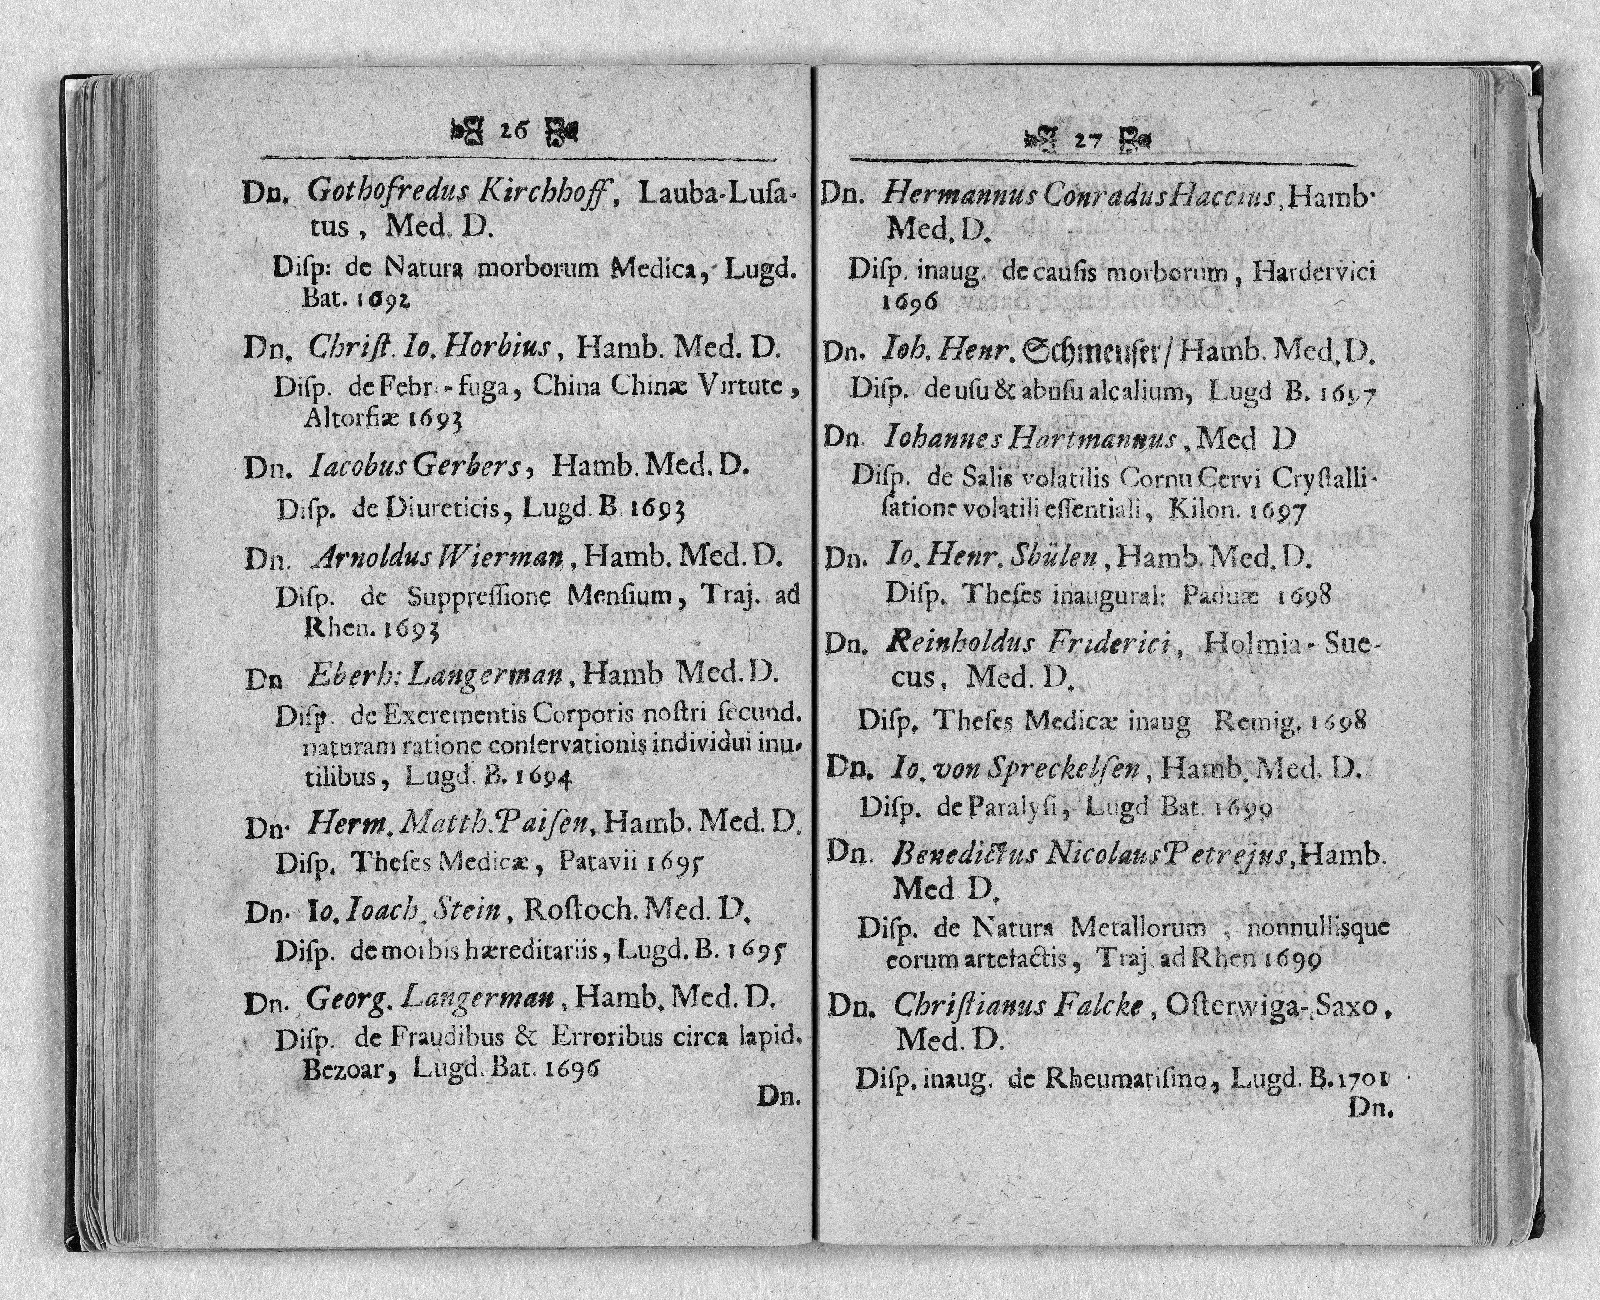 26
Dn. Gothofredus Kirchhoff, Lauba-Luſa-
tus, Med. D.
Diſp: de Natura morborum Medica, Lugd.
Bat. 1692
Dn. Chriſt. Io. Horbius, Hamb. Med. D.
Diſp. de Febri-fuga, China Chinæ Virtute,
Altorfiæ 1693
Dn. Iacobus Gerbers, Hamb. Med. D.
Diſp. de Diureticis, Lugd. B 1693
Dn. Arnoldus Wierman, Hamb. Med. D.
Diſp. de Suppreſſione Menſium, Traj. ad
Rhen. 1693
Dn Eberh: Langerman, Hamb Med. D.
Diſp. de Excrementis Corporis noſtri ſecund.
naturam ratione conſervationis individui inu-
tilibus, Lugd. B. 1694
Dn. Herm. Matth. Paiſen, Hamb. Med. D.
Diſp. Theſes Medicæ, Patavii 1695
Dn. Io. Ioach. Stein, Roſtoch. Med. D.
Diſp. de morbis hæreditariis, Lugd. B. 1695
Dn. Georg. Langerman, Hamb. Med. D.
Diſp. de Fraudibus & Erroribus circa lapid.
Bezoar, Lugd. Bat. 1696
Dn.
27
Dn. Hermannus Conradus Haccius, Hamb.
Med. D.
Diſp. inaug. de cauſis morborum, Hardervici
1696
Dn. Ioh. Henr. Schmeuſer/ Hamb. Med. D.
Diſp. de uſu & abuſu alcalium, Lugd B. 1697
Dn. Iohannes Hartmannus, Med D
Diſp. de Salis volatilis Cornu Cervi Cryſtalli-
ſatione volatili eſſentiali, Kilon. 1697
Dn. Io. Henr. Sbülen, Hamb. Med. D.
Diſp. Theſes inaugural: Paduæ 1698
Dn. Reinholdus Friderici, Holmia-Sue-
cus, Med. D.
Diſp. Theſes Medicæ inaug Remig. 1698
Dn. Io. von Spreckelſen, Hamb. Med. D.
Diſp. de Paralyſi, Lugd Bat. 1699
Dn. Benedictus Nicolaus Petrejus, Hamb.
Med D.
Diſp. de Natura Metallorum, nonnullisque
eorum artefactis, Traj. ad Rhen 1699
Dn. Chriſtianus Falcke, Oſterwiga-Saxo,
Med. D.
Diſp. inaug. de Rheumatiſmo, Lugd. B. 1701
Dn.